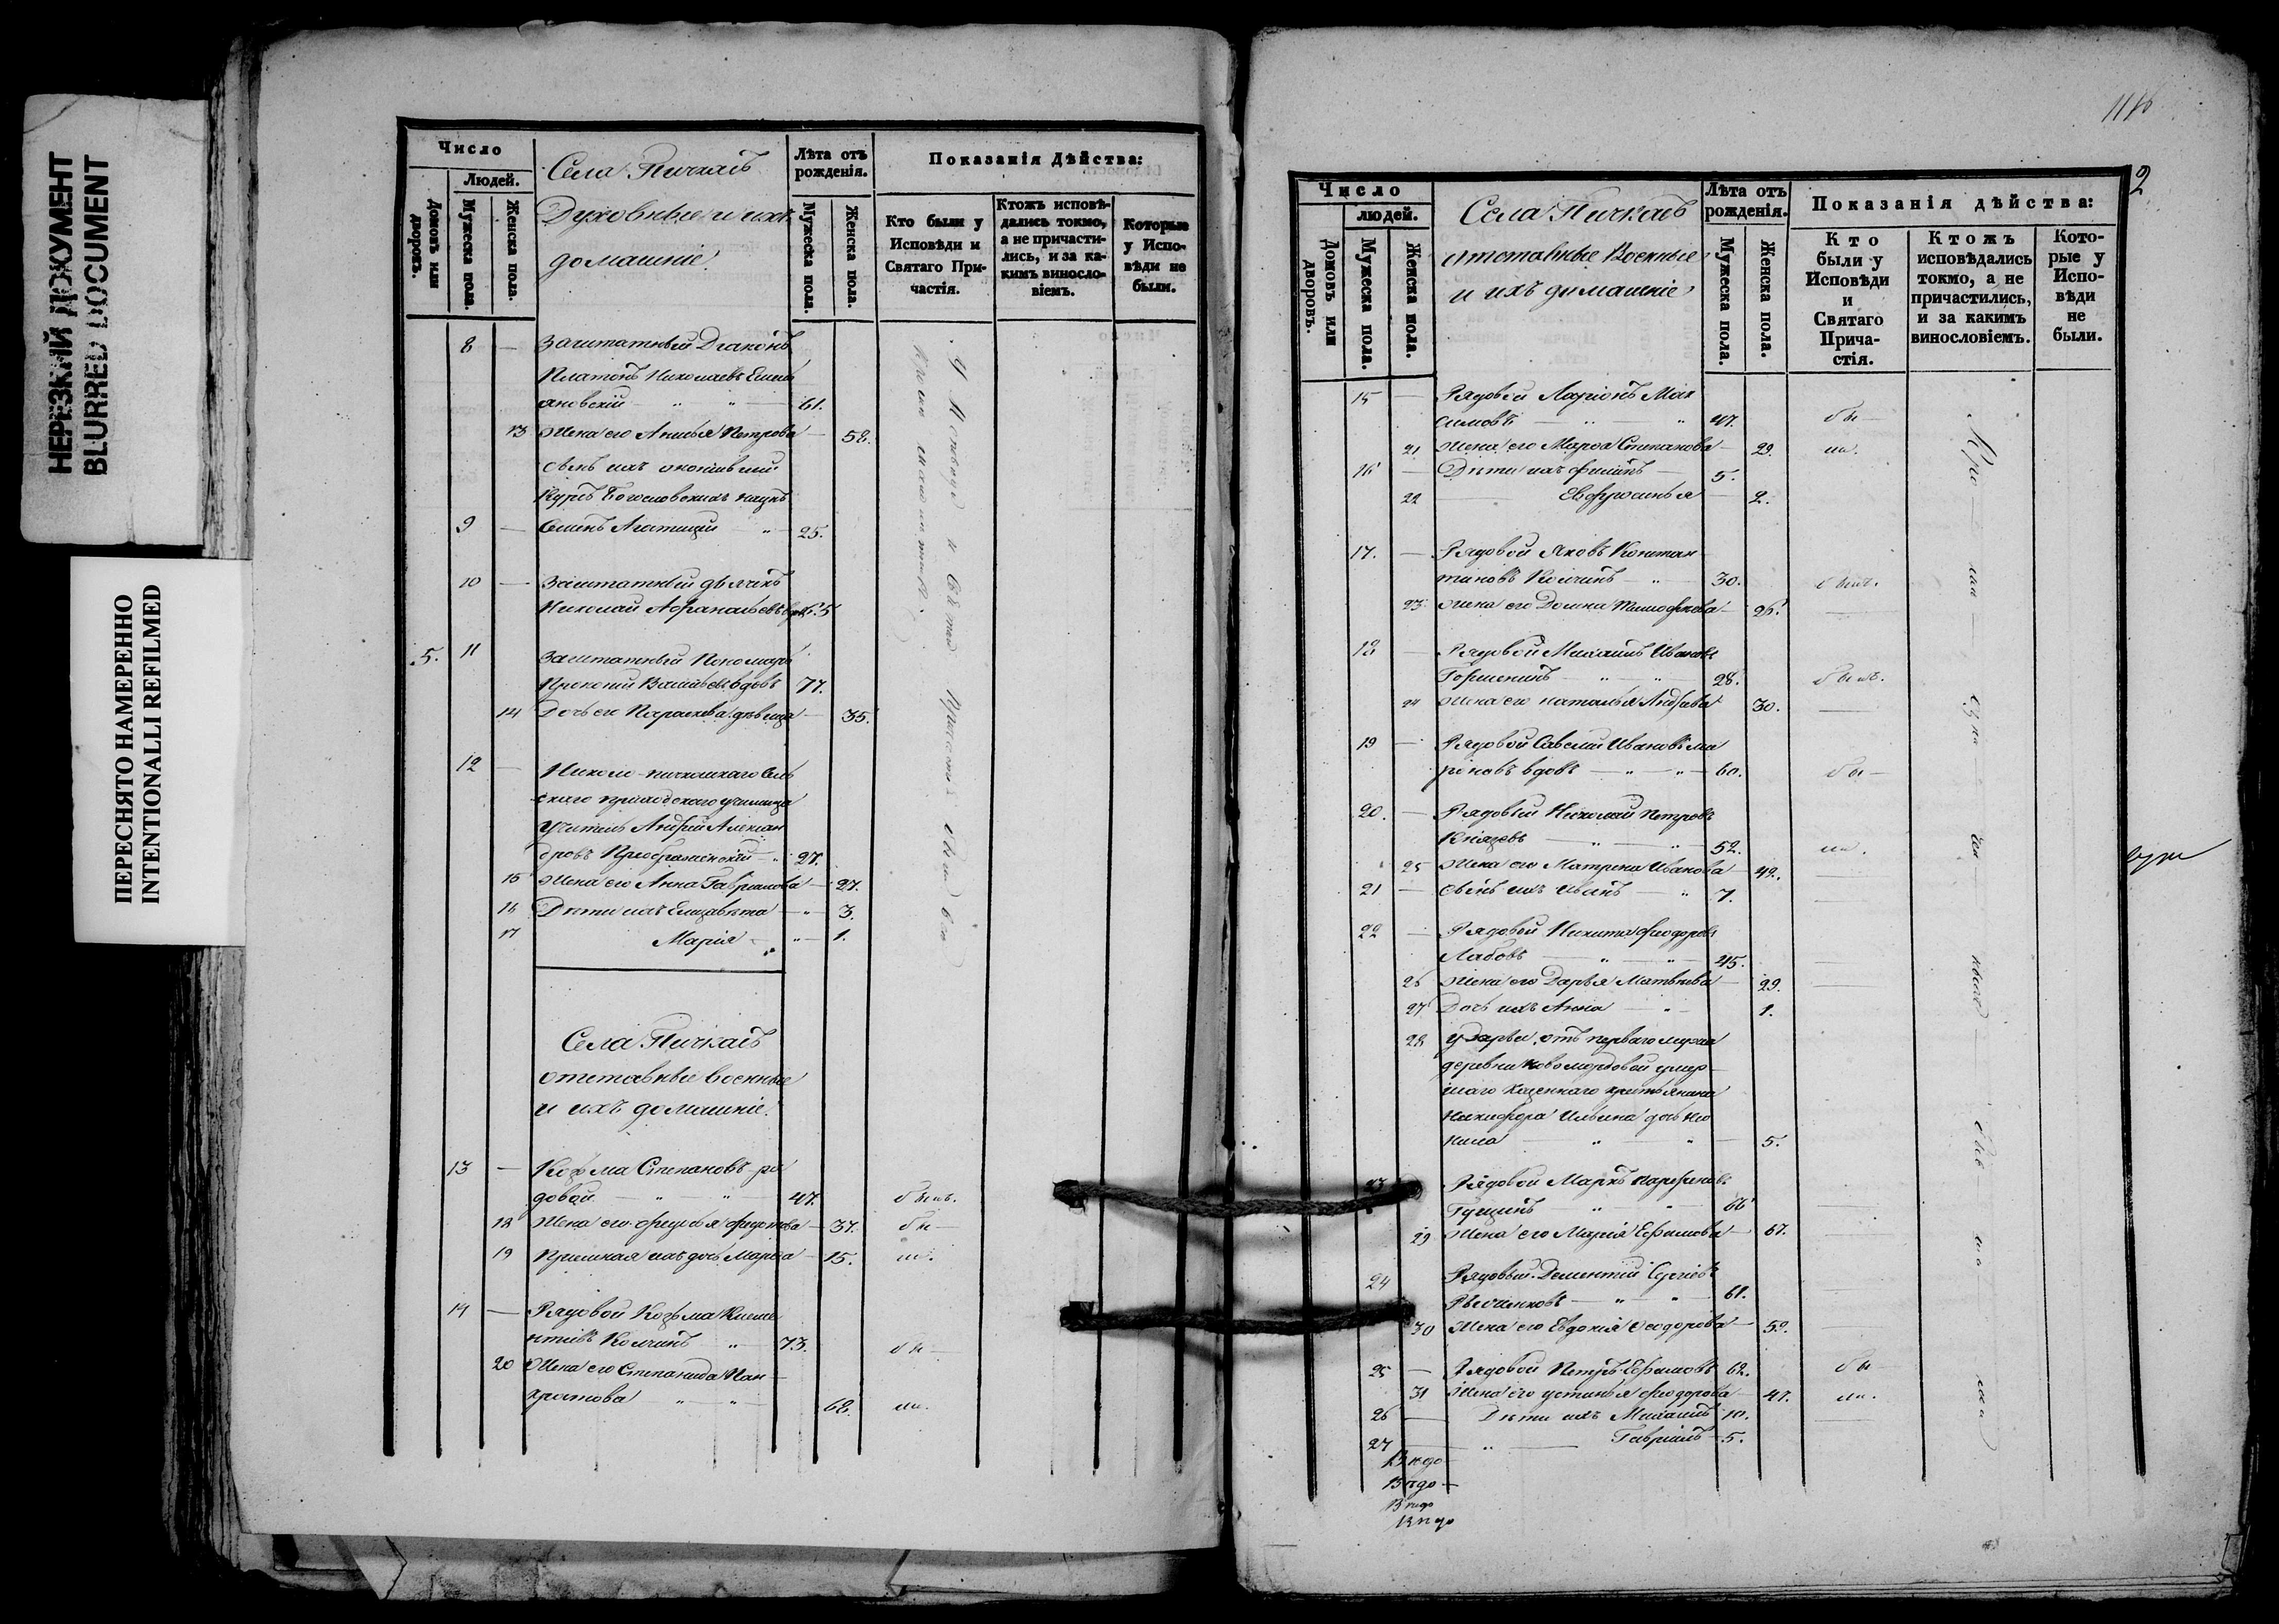 НЕРЕЗКИЙ ДОКУМЕНТ
BLURRED DOCUMENT
ПЕРЕСНЯТО НАМЕРЕННО
INTENTIONALLI REFILMED
Число
Людей.
Домовъ или дворовъ.
Мужеска пола.
Женска пола.
Села Пичкасъ
Духовные и ихъ
домашніе.
Лѣта отъ рожденія.
Мужеска пола.
Женска пола.
Показанія Дѣйства:
Кто были у Исповѣди и Святаго Причастія.
Ктожъ исповѣдались токмо, а не причастились, и за какимъ винословіемъ.
Которые у Исповѣди не были.
8 — Заштатный Діаконъ
Платонъ Николаевъ
61.
13 Жена его Анисья Петрова — 58.
сынъ ихъ окончивши
Курсъ Богословскихъ наукъ
9 — Семенъ 25.
10 — Заштатный дьячикъ
Николай Афанасьевъ вдовъ 65
5. 11 Заштатный Пономарь
Прокопій Васильевъ вдовъ 77.
14 Дочь его Параскева девица — 35.
12 — Сель
скаго приходскаго училища
Учитель Андрей Алексан
дровъ Преображенскій 27.
15 Жена его Анна Гавриилова — 27.
16 Дѣти ихъ Елизавета — 3.
17 Марія — 1.
У Исповѣди и Святаго Причастія были всѣ
Села Пичкасъ
отставные военные
и ихъ домашніе.
13 — Козьма Степановъ ря
довой 47. былъ.
18 Жена его Федосья Федотова — 37. бы—
19 Приемная ихъ дочь Марѳа — 15. ла.
14 — Рядовой Козьма Клеме
нтіевъ Колчинъ 73. бы—
20 Жена его Степанида Пан
кратова 68. ли.
1176
2
Число
людей.
Домовъ или дворовъ.
Мужеска пола.
Женска пола.
Села Пичкасъ
отставные Военные
и ихъ домашніе
Лѣта отъ рожденія.
Мужеска пола.
Женска пола.
Показанія дѣйства:
Кто были у Исповѣди и Святаго Причастія.
Ктожъ исповѣдались токмо, а не причастились, и за какимъ винословіемъ.
Которые у Исповѣди не были.
15 — Рядовой Ларіонъ Мак
симовъ 47. бы—
21 Жена его Марѳа Степанова — 29. ли.
16 — Дѣти ихъ Филипъ — 5.
22 — Евфросинья — 2.
17. — Рядовой Яковъ Констан
тиновъ Колчинъ 30. былъ.
23 Жена его Домна Тимофѣева — 26.
18 — Рядовой Михаилъ Ивановъ
Горшенинъ 28. былъ.
24 Жена его Наталья Андреева 30.
19 — Рядовой Савелій Ивановъ Ма
риновъ вдовъ 60. бы—
20. — Рядовый Николай Петровъ
Князевъ 52. ли.
25 Жена его Матрена Иванова — 42.
21 — сынъ ихъ Иванъ 7.
22 — Рядовой Никита Феодоровъ
Лабовъ 45.
26 Жена его Дарья Матвѣева — 29.
27 Дочь ихъ Анна 1.
28 у Дарьи отъ перваго мужа
деревни Новомордовой умер
шаго казеннаго крестьянина
Никифора Ильина дочь Нео
нила 5.
23 Рядовой Маркъ Парфеновъ
Гущинъ 66
29 Жена его Марія Ефимова — 67.
24 Рядовый Дементій Сергіевъ
61.
30 Жена его Евдокія Феодорова — 52.
25 — Рядовой Петръ Ефимовъ 62. бы
31 Жена его Устинья Феодорова — 47. ли.
26 — Дѣти ихъ Михаилъ 10.
27 — Гавріилъ 5.